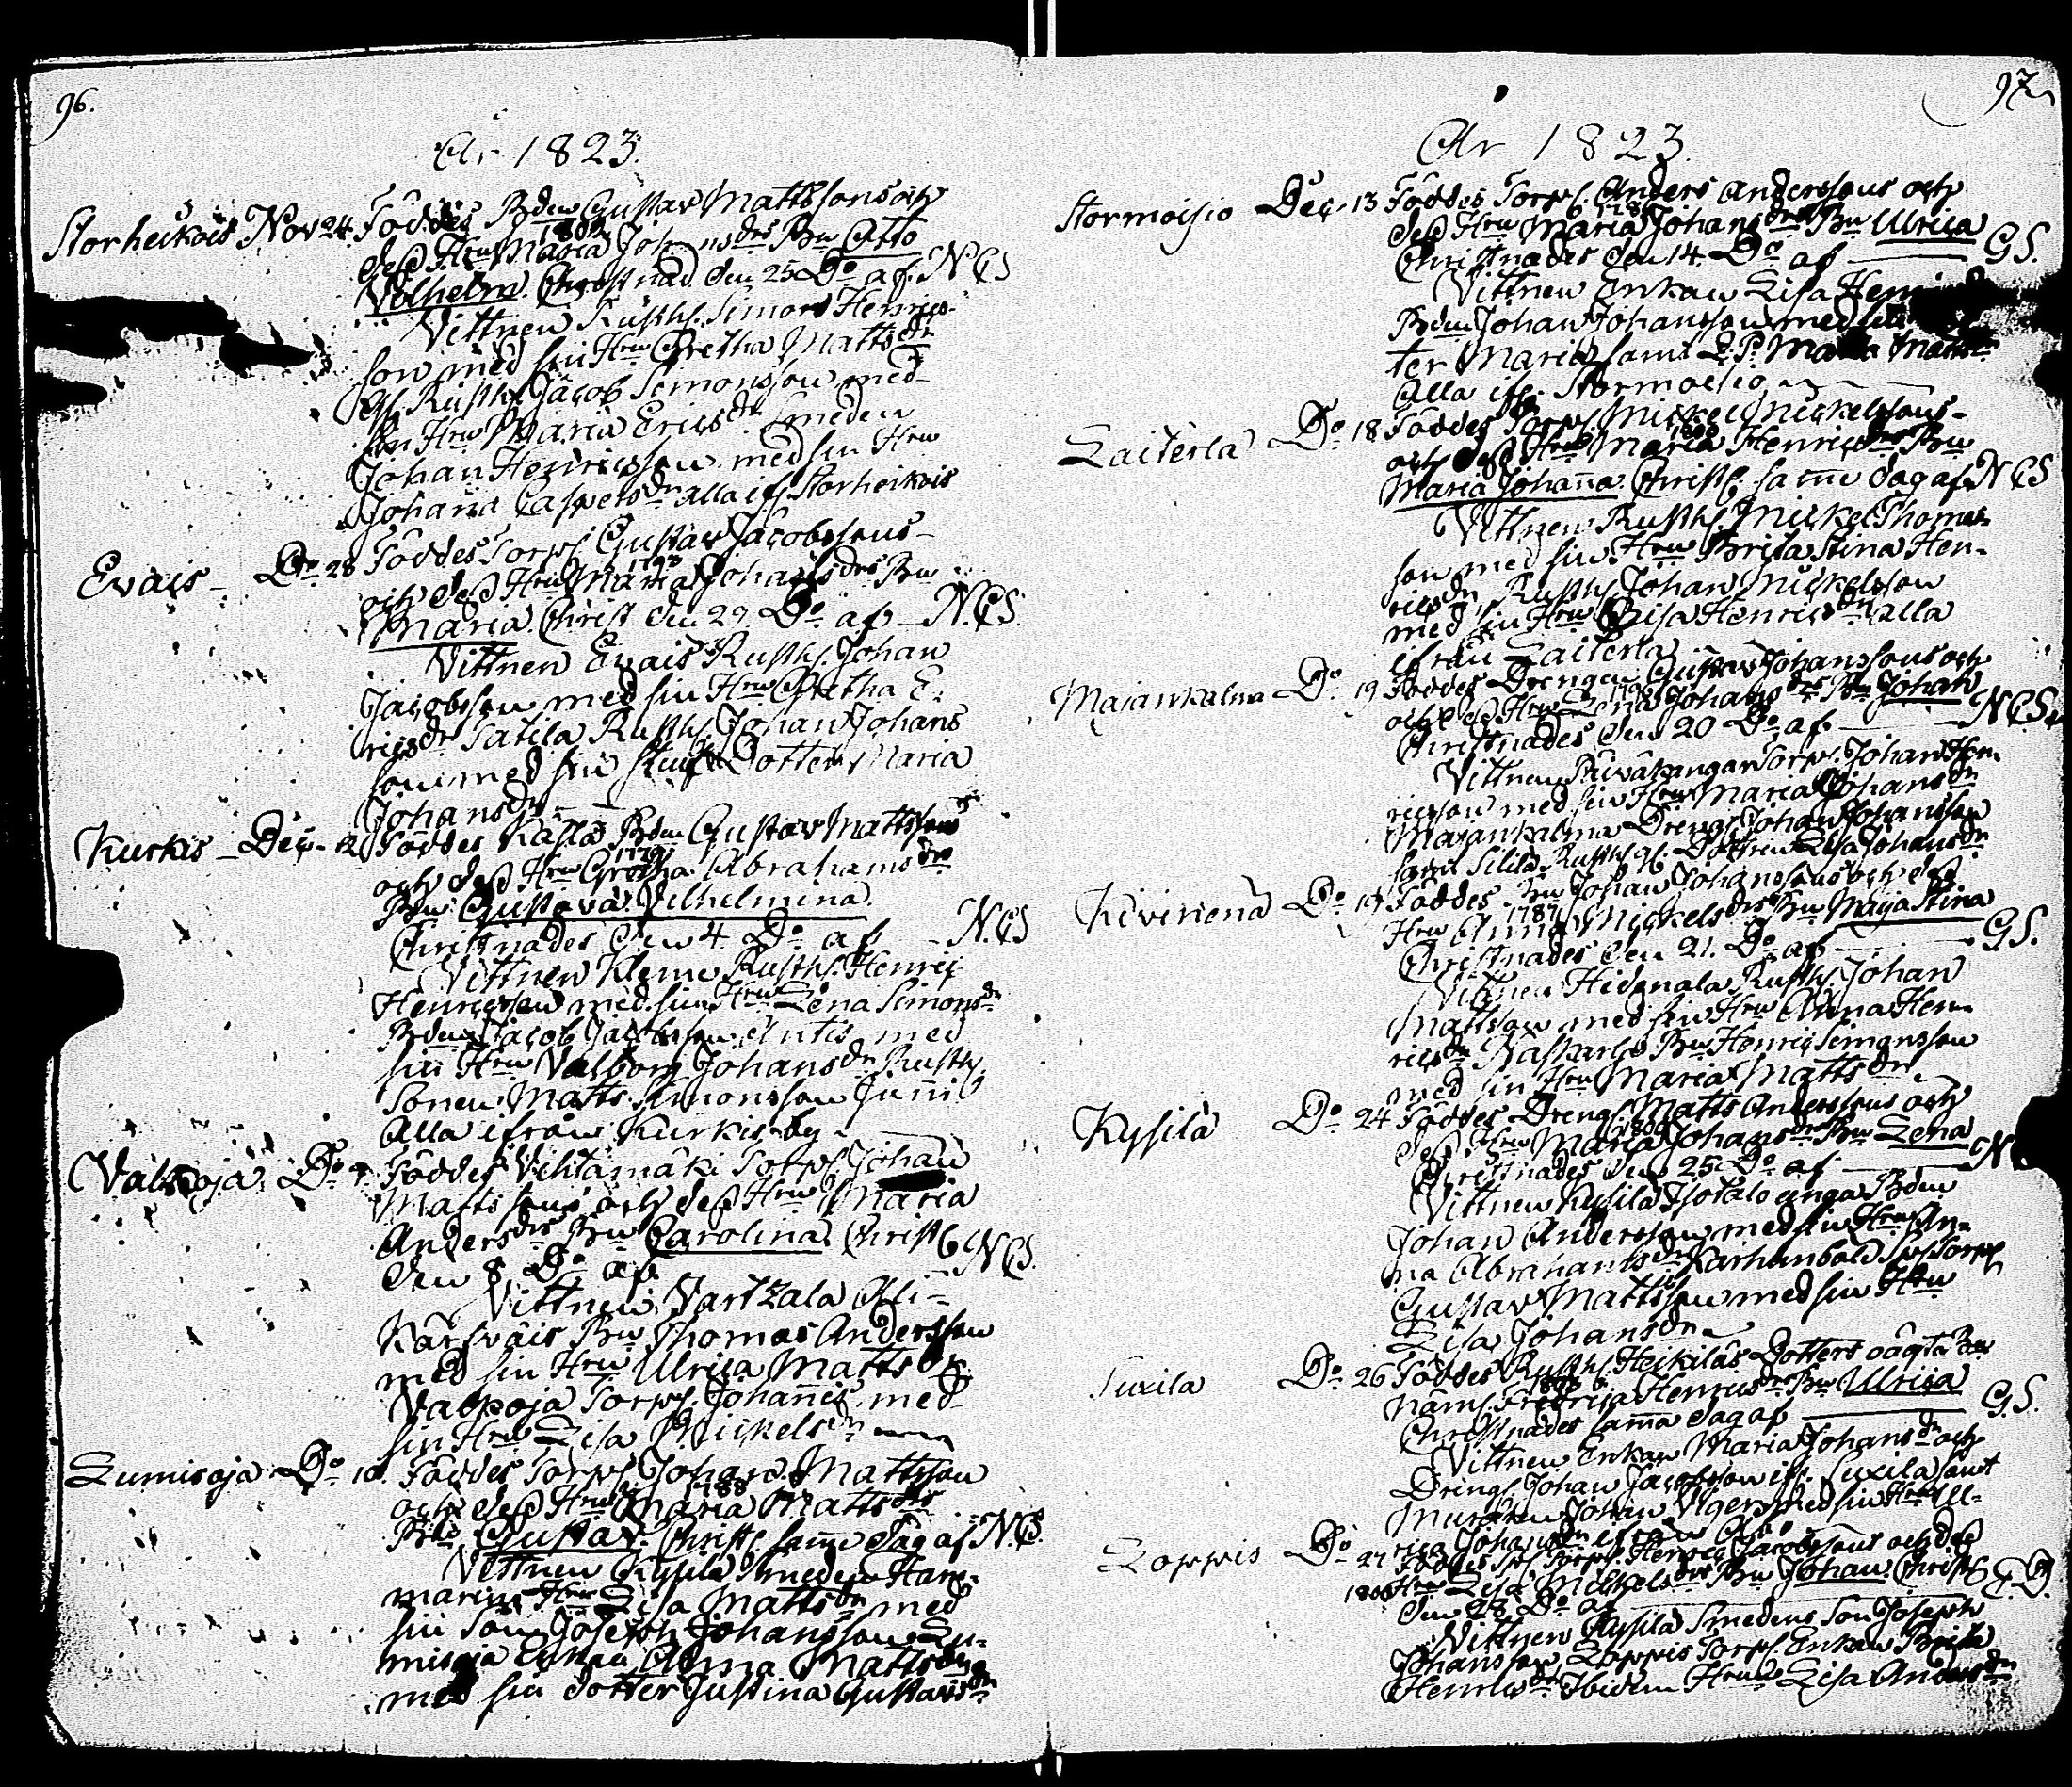 96.
År 1823.
Storheikois Nov 24. Föddes Bden Gustav Mattssons och
dess Hru Maria Johansdrs Bn Otto
1802
Vilhelm. Christnad den 25 Do af N.C.S
Vittnen Rusth. Simon Henrics-
son med sin Hru Gretha Mattsdr
gl. Rusth. Jacob Simonsson med
sin Hru Maria Ericsdr Smeden
Johan Henricsson med sin Hru
Johanna Caspersdr alla ifr. Storheikois
Evais - Do 28 Föddes Torp. Gustav Jacobssons -
och dess Hru Maria Johansdrs Bn
Maria. Christ den 29 Do af - N.C.S.
Vittnen Evais Rusth. Johan
Jacobsson med sin Hru Gretha E-
ricsdr Satila Rusth. Johan Johans
son med sin Dotter Maria
Johansdr
Kurkis - Dec - 2 Föddes Källa Bden Gustav Mattssons
och dess Hru Gretha Abrahamsdrs
Bn Gustava Vilhelmina.
Christnades den 4 Do af - N.C.S
Vittnen Kleme Rusth. Henric
Henricsson med sin Hru Lena Simonsdr
Bden Jacob Jacobsson Antis med
sin Hru Valborg Johansdr Rusth.
Sonen Matts Simonsson Junni
Alla ifrån Kurkis by
Valkoja Do 7. Föddes Vihtämäki Torp. Johan
Mattssons och dess Hru Maria
Andersdrs Bn Carolina Christ
den 8 Do af - N.C.S.
Vittnen Vartzala Ali-
Kärkväis Bn Thomas Andersson
med sin Hru Ulrica Mattsdr
Valkoja Torp. Johan med
sin Hru Lisa Mickelsdr
Lumisoja Do 10. Föddes Torp. Johan Mattsson
1788
och dess Hru Maria Mattsdrs
Bn Gustav. Christ. samme dag af N.C.S.
Vittnen Kysilä Smeden Ham-
marin Hru Lisa Mattsdr med
sin Son Joseph Johansson Lu-
misoja Enkan Anna Mattsdr
med sin dotter Justina Gustavsdr
97.
År 1823.
Stormoisio Dec. 13 Föddes Torp. Anders Anderssons och
dess Hru Maria Johansdrs Bn Ulrica
Christnades den 14 Do af G.S.
Vittnen Enkan Lisa
Bden Johan Johansson med
ter Maria samt
Alla ifr. Stormoisio
Laiterla Do 18 Föddes Torp. Mickel Mickelssons -
och dess Hru Maria Henricsdrs Bn
Maria Johanna Christ. samme dag af N.C.S
Vittnen Rusth. Mickel Thomas
son med sin Hru Brita Stina Hen-
ricsdr Rusth. Johan Mickelsson
med sin Hru Lisa Henricsdr alla
ifrån Laiterla
Majankalma Do 19 Föddes Drengen Gustav Johanssons och
dess Hru Lena Johansdrs Bn Johan
Christnades den 20 Do af N.C.S.
Vittnen Torp. Johan Hen
ricsson med sin Hru Maria Johansdr
Majankalma Dreng Johan Johansson
samt Rusth. Dottren Lisa Johansdr
Kiviniena Do 19 Föddes Bn Johan Johanssons och dess
1787
Hru Anna Mickelsdrs Bn Maja Stina
Christnades den 21. Do af G.S.
Vittnen Hidenala Rusth. Johan
Mattsson med sin Hru Anna Hen-
ricsdr Bn Henric Simonsson
med sin Hru Maria Mattsdr
Kysilä Do 24 Föddes Dreng. Matts Anderssons och
1800
dess Hru Maria Johansdrs Bn Lena
Christnades den 25 Do af N
Vittnen Kysilä Isotalo unga Bden
Johan Andersson med sin Hru An-
na Abrahamsdr Torp.
Gustav Mattsson med sin Hru
Lisa Johansdr
Tuxila Do 26 Föddes Rusth. Heikiläs Dotters oägta Bn
näml. Fredrica Henricsdrs Bn Ulrica
Christnades samma dag af G.S.
Vittnen Enkan Maria Johansdr och
Dreng. Johan Jacobsson ifr. Tuxila samt
Muraren Johan med sin Hru Ul-
rica Johansdr ifrån Åbo
Loppis Do 27 Föddes Torp. Henric Jacobssons och dess
Hru Lisa Mickelsdrs Bn Johan Christ
den 28 Do af
Vittnen Kysilä Smedens Son Joseph
Johansson Loppis Torp. Enkan Brita
Henricsdr Ibidem Hru Lisa Andersdr